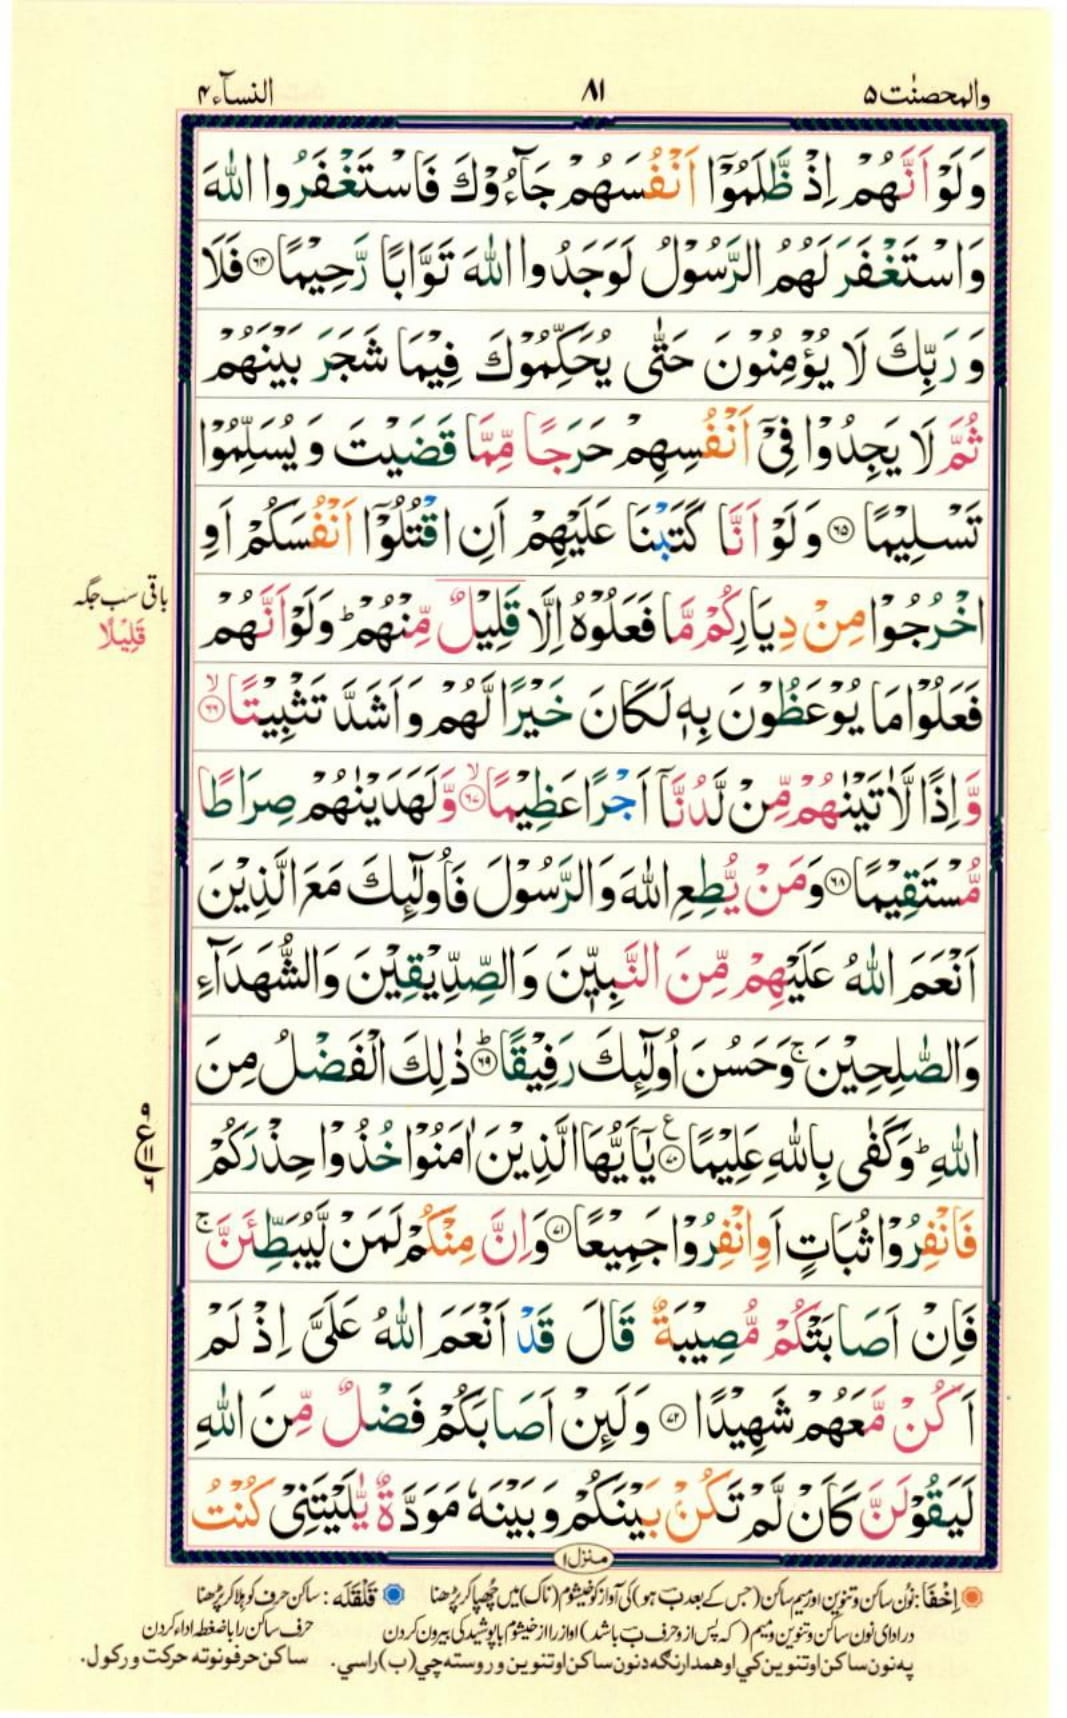 والمحصنٰت۵ ۸۱ النسآء۴
وَلَوْ اَنَّهُمْ اِذْ ظَّلَمُوْۤا اَنْفُسَهُمْ جَآءُوْكَ فَاسْتَغْفَرُوا اللّٰهَ
وَاسْتَغْفَرَ لَهُمُ الرَّسُوْلُ لَوَجَدُوا اللّٰهَ تَوَّابًا رَّحِيْمًا ۶۴ فَلَا
وَ رَبِّكَ لَا يُؤْمِنُوْنَ حَتّٰى يُحَكِّمُوْكَ فِيْمَا شَجَرَ بَيْنَهُمْ
ثُمَّ لَا يَجِدُوْا فِيْۤ اَنْفُسِهِمْ حَرَجًا مِّمَّا قَضَيْتَ وَ يُسَلِّمُوْا
تَسْلِيْمًا ۶۵ وَلَوْ اَنَّا كَتَبْنَا عَلَيْهِمْ اَنِ اقْتُلُوْۤا اَنْفُسَكُمْ اَوِ
اخْرُجُوْا مِنْ دِيَارِكُمْ مَّا فَعَلُوْهُ اِلَّا قَلِيْلٌ مِّنْهُمْ ؕ وَلَوْ اَنَّهُمْ
باقی سب جگہ
قَلِيْلًا
فَعَلُوْا مَا يُوْعَظُوْنَ بِهٖ لَكَانَ خَيْرًا لَّهُمْ وَاَشَدَّ تَثْبِيْتًا ۙ ۶۶
وَّاِذًا لَّاٰتَيْنٰهُمْ مِّنْ لَّدُنَّاۤ اَجْرًا عَظِيْمًا ۙ ۶۷ وَّلَهَدَيْنٰهُمْ صِرَاطًا
مُّسْتَقِيْمًا ۶۸ وَمَنْ يُّطِعِ اللّٰهَ وَالرَّسُوْلَ فَاُولٰٓئِكَ مَعَ الَّذِيْنَ
اَنْعَمَ اللّٰهُ عَلَيْهِمْ مِّنَ النَّبِيّٖنَ وَالصِّدِّيْقِيْنَ وَالشُّهَدَآءِ
وَالصّٰلِحِيْنَ ۚ وَحَسُنَ اُولٰٓئِكَ رَفِيْقًا ؕ ۶۹ ذٰلِكَ الْفَضْلُ مِنَ
اللّٰهِ ؕ وَكَفٰى بِاللّٰهِ عَلِيْمًا ۷۰ ع يٰۤاَيُّهَا الَّذِيْنَ اٰمَنُوْا خُذُوْا حِذْرَكُمْ
۹ ع ۱۱ ۶
فَانْفِرُوْا ثُبَاتٍ اَوِانْفِرُوْا جَمِيْعًا ۷۱ وَاِنَّ مِنْكُمْ لَمَنْ لَّيُبَطِّئَنَّ ۚ
فَاِنْ اَصَابَتْكُمْ مُّصِيْبَةٌ قَالَ قَدْ اَنْعَمَ اللّٰهُ عَلَيَّ اِذْ لَمْ
اَكُنْ مَّعَهُمْ شَهِيْدًا ۷۲ وَلَئِنْ اَصَابَكُمْ فَضْلٌ مِّنَ اللّٰهِ
لَيَقُوْلَنَّ كَاَنْ لَّمْ تَكُنْۢ بَيْنَكُمْ وَبَيْنَهٗ مَوَدَّةٌ يّٰلَيْتَنِيْ كُنْتُ
منزل۱
اِخْفَا: نُون ساکن و تنوین اور میم ساکن (جس کے بعد ب ہو) کی آواز کو خیشوم (ناک) میں چُھپا کر پڑھنا قَلْقَلَه: ساکن حرف کو ہلا کر پڑھنا
در ادای نون ساکن و تنوین و میم (که پس از و حرف ب باشد) آواز را از خیشوم با پوشیدگی بیرون کردن حرف ساکن را با ضغطه اداء کردن
په نون ساکن او تنوین کي او همدارنگه د نون ساکن او تنوین وروسته چي (ب) راسي. ساکن حرفونو ته حرکت ورکول.